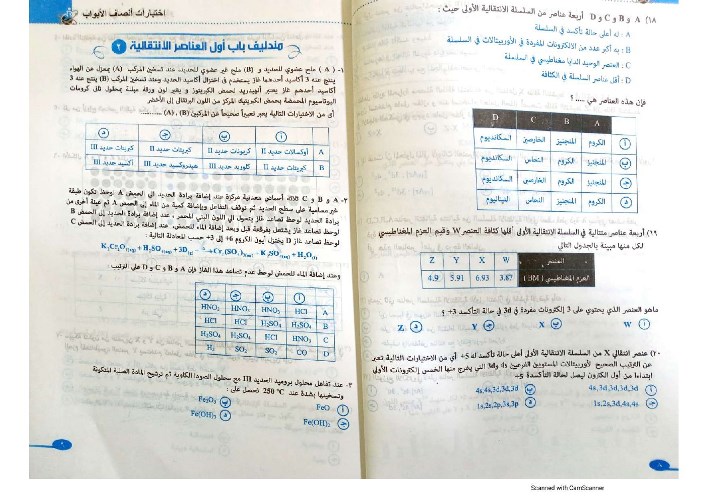 ١٨) A و B و C و D أربعة عناصر من السلسلة الانتقالية الأولى حيث :
A : له أعلى حالة تأكسد في السلسلة
B : به أكبر عدد من الالكترونات المفردة في الأوربيتالات في السلسلة
C : العنصر الوحيد الدايا مغناطيسي في السلسلة
D : أقل عناصر السلسلة في الكثافة
فإن هذه العناصر هي ..... ؟
A B C D
أ الكروم المنجنيز الخارصين السكانديوم
ب المنجنيز الكروم النحاس السكانديوم
ج المنجنيز الكروم الخارصين السكانديوم
د الكروم المنجنيز النحاس التيتانيوم
١٩) أربعة عناصر متتالية في السلسلة الانتقالية الأولى أقلها كثافة العنصر W وقيم العزم المغناطيسي
لكل منها مبينة بالجدول التالي
العنصر W X Y Z
العزم المغناطيسي ( BM ) 3.87 6.93 5.91 4.9
ماهو العنصر الذي يحتوي على 3 إلكترونات مفردة في 3d في حالة التأكسد 3+ ؟
أ W ب X ج Y د Z
٢٠) عنصر انتقالي X من السلسلة الانتقالية الأولى أعلى حالة تأكسد له 5+ أي من الاختيارات التالية تعبر
عن الترتيب الصحيح لأوربيتالات المستويين الفرعيين 4s و 3d التي يخرج منها الخمس إلكترونات الأولى
ابتداءا من أول الكترون ليصل لحالة التأكسد 5+
أ 4s,3d,3d,3d,3d ب 4s,4s,3d,3d,3d
ج 1s,2s,3d,4s,4s د 1s,2s,2p,3s,3p
٨
اختبارات أنصف الأبواب
مندليف باب أول العناصر الانتقالية ٢
١- ( A ) ملح عضوي للحديد و (B) ملح غير عضوي للحديد، عند تسخين المركب (A) بمعزل عن الهواء
ينتج عنه 3 أكاسيد أحدهم غاز يستخدم في اختزال أكاسيد الحديد وعند تسخين المركب (B) ينتج عنه 3
أكاسيد أحدهم غاز يعتبر أنهيدريد لحمض الكبريتوز و يغير لون ورقة مبللة بمحلول ثاني كرومات
البوتاسيوم المحمضة بحمض الكبريتيك المركز من اللون البرتقالي إلى الأخضر
أي من الاختيارات التالية يعبر تعبيراً صحيحاً عن المركبين (A) ، (B) ....
أ ب ج د
A أوكسالات حديد II كربونات حديد II كبريتات حديد II كبريتات حديد III
B كبريتات حديد II كلوريد حديد III هيدروكسيد حديد III أكسيد حديد III
٢- A و B و C أحماض معدنية مركزة عند إضافة برادة الحديد الي الحمض A لوحظ تكون طبقة
غير مسامية على سطح الحديد ثم توقف التفاعل
برادة الحديد لوحظ تصاعد غاز يتحول الي اللون البني المحمر ، عند إضافة برادة الحديد إلى الحمض B
لوحظ تصاعد غاز يشتعل بفرقعة قبل وبعد إضافة الماء للحمض، عند إضافة برادة الحديد إلى الحمض C
لوحظ تصاعد غاز D يختزل أيون الكروم 6+ إلى 3+ حسب المعادلة التالية :
وعند إضافة الماء للحمض لوحظ عدم تصاعد هذا الغاز فإن A و B و C و D على الترتيب :
أ ب ج د
A HCl HNO₃ HNO₃ HNO₃
B H₂SO₄ H₂SO₄ HCl HCl
C HNO₃ HCl H₂SO₄ H₂SO₄
D CO SO₂ SO₂ H₂
٣- عند تفاعل محلول بروميد الحديد III مع محلول الصودا الكاوية ثم ترشيح المادة الصلبة المتكونة
وتسخينها بشدة عند 250 °C نحصل على :
أ FeO ب Fe₂O₃
ج Fe(OH)₂ د Fe(OH)₃
٩
Scanned with CamScanner